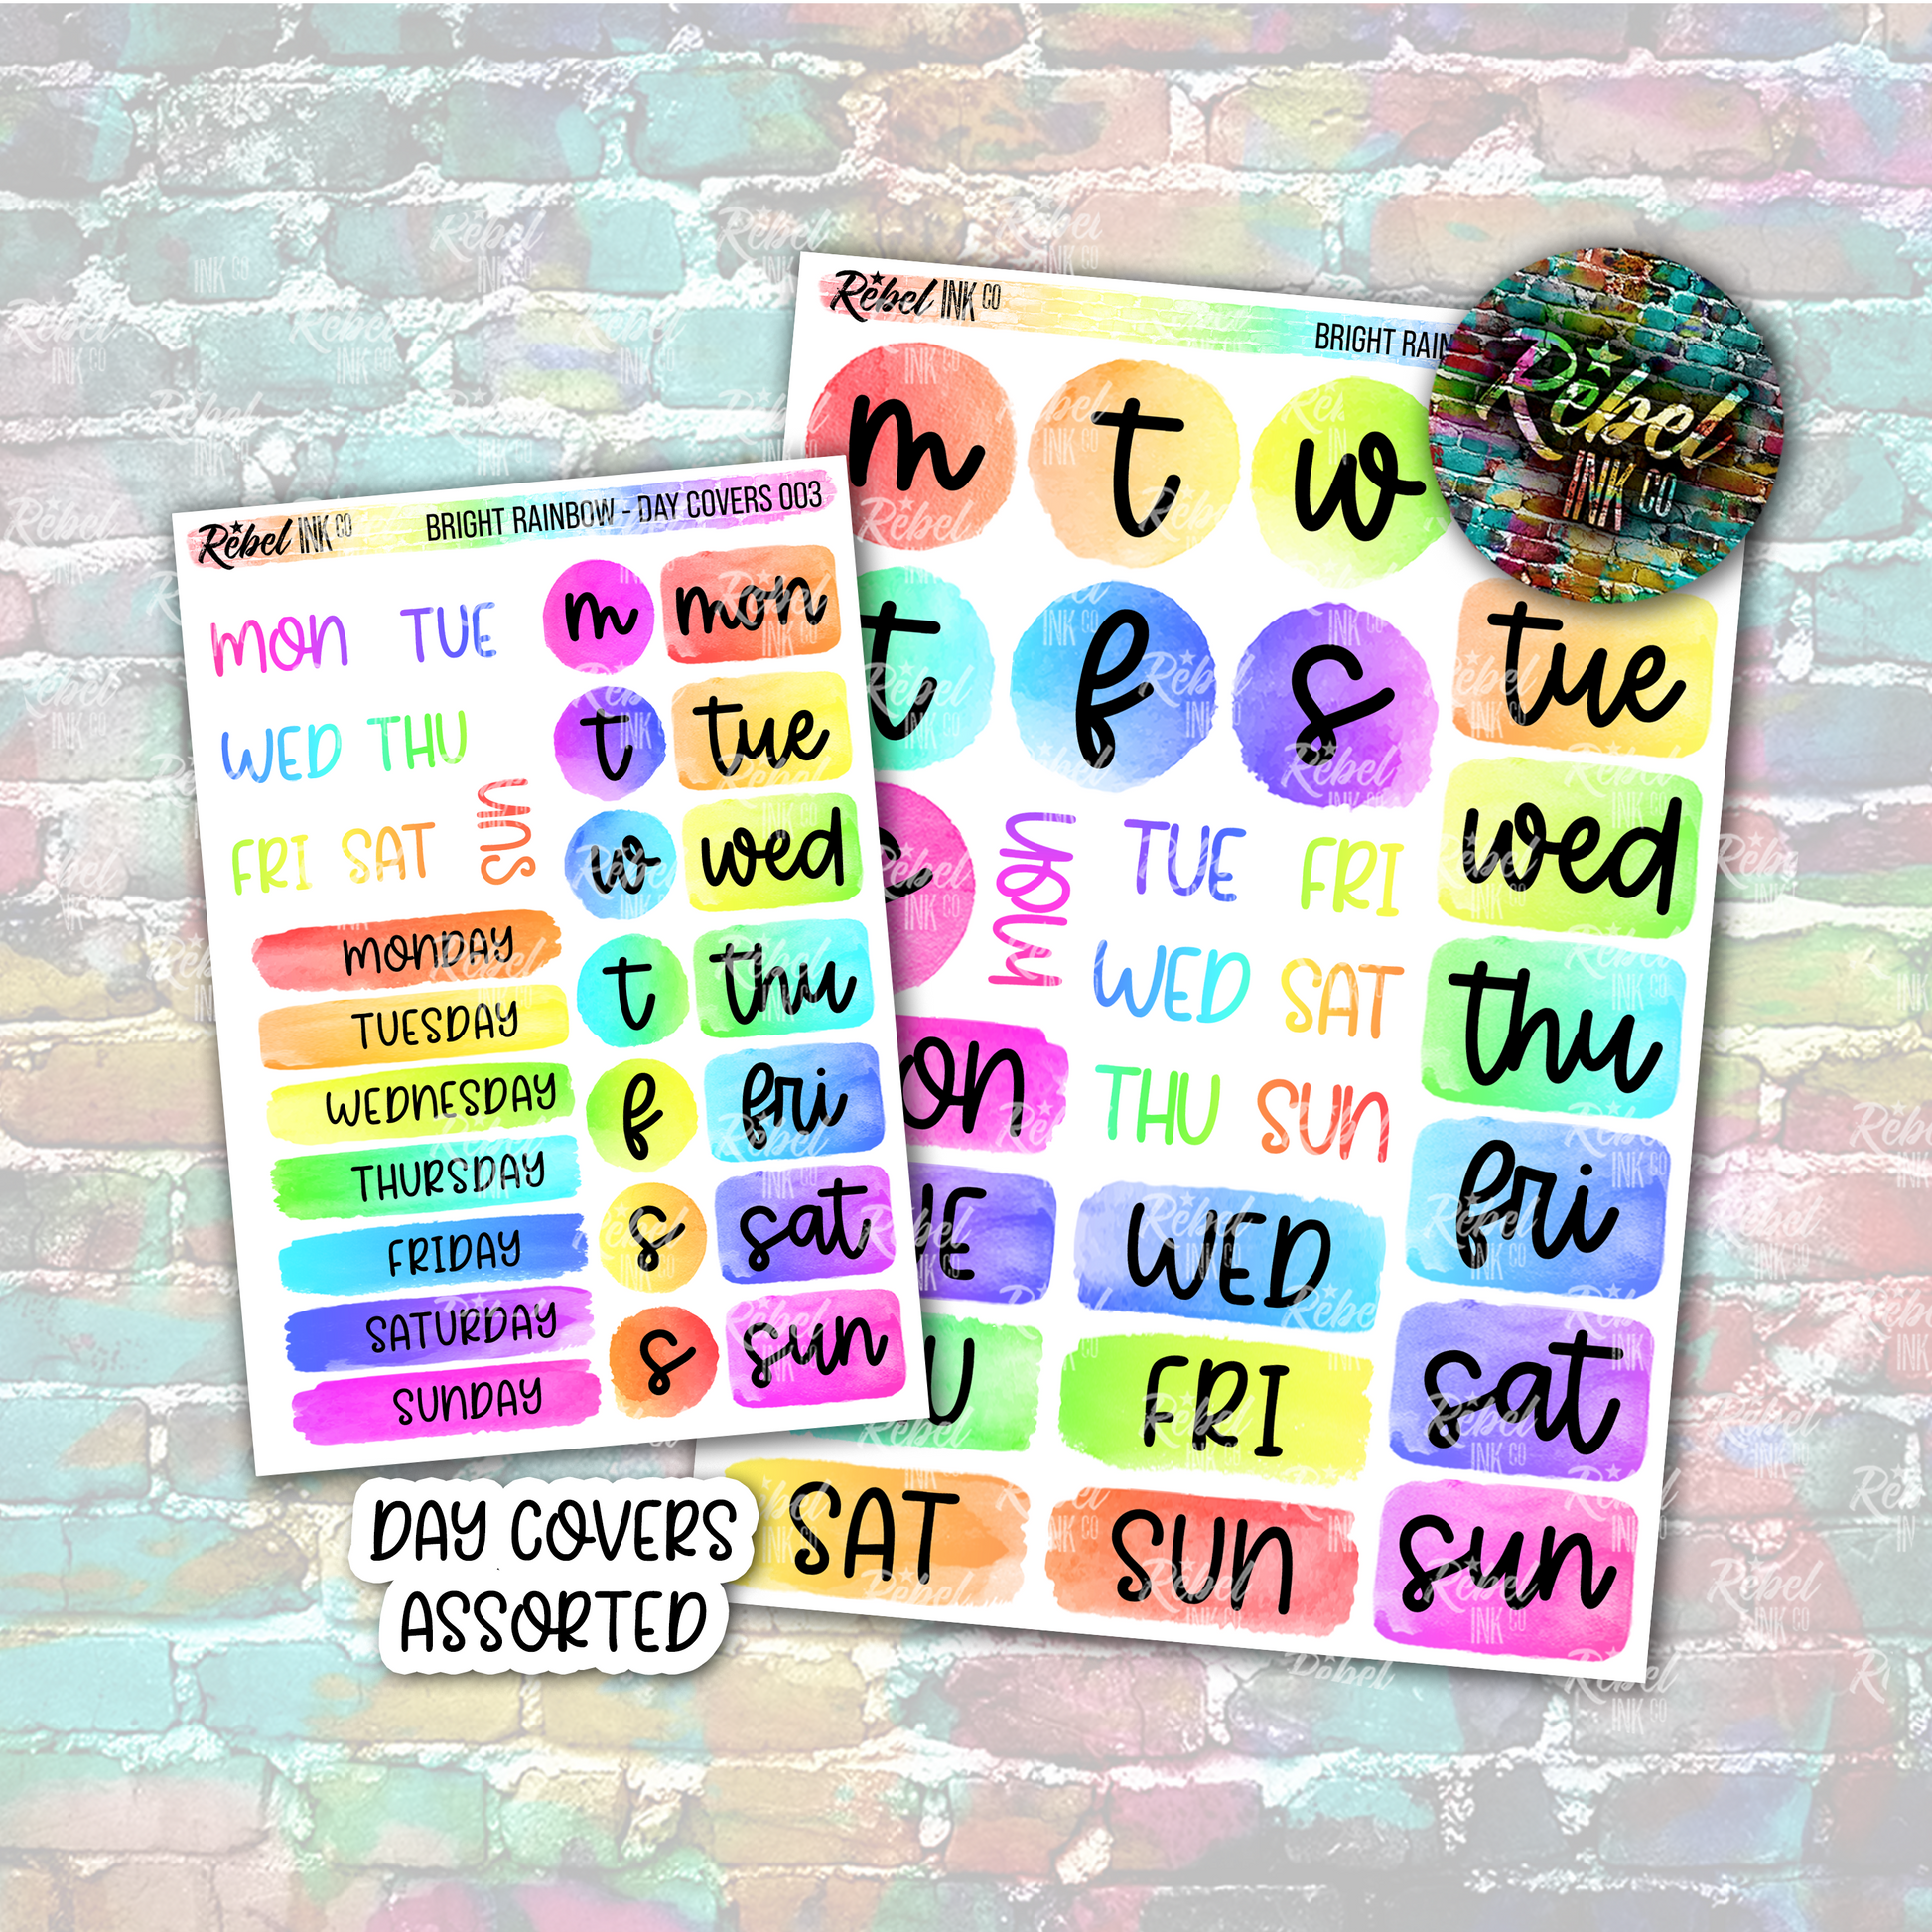 Rebel INK CO
BRIGHT RAINBOW - DAY COVERS 003
MON TUE
WED THU
FRI SAT
SUN
MONDAY
TUESDAY
WEDNESDAY
THURSDAY
FRIDAY
SATURDAY
SUNDAY
m mon
t tue
w wed
t thu
f fri
s sat
s sun
Rebel INK CO
BRIGHT RAIN
m t w
t f s
MON
TUE FRI
WED SAT
THU SUN
ON
UE
WED
U
FRI
SAT
SUN
tue
wed
thu
fri
sat
sun
Rebel
INK CO
DAY COVERS
ASSORTED